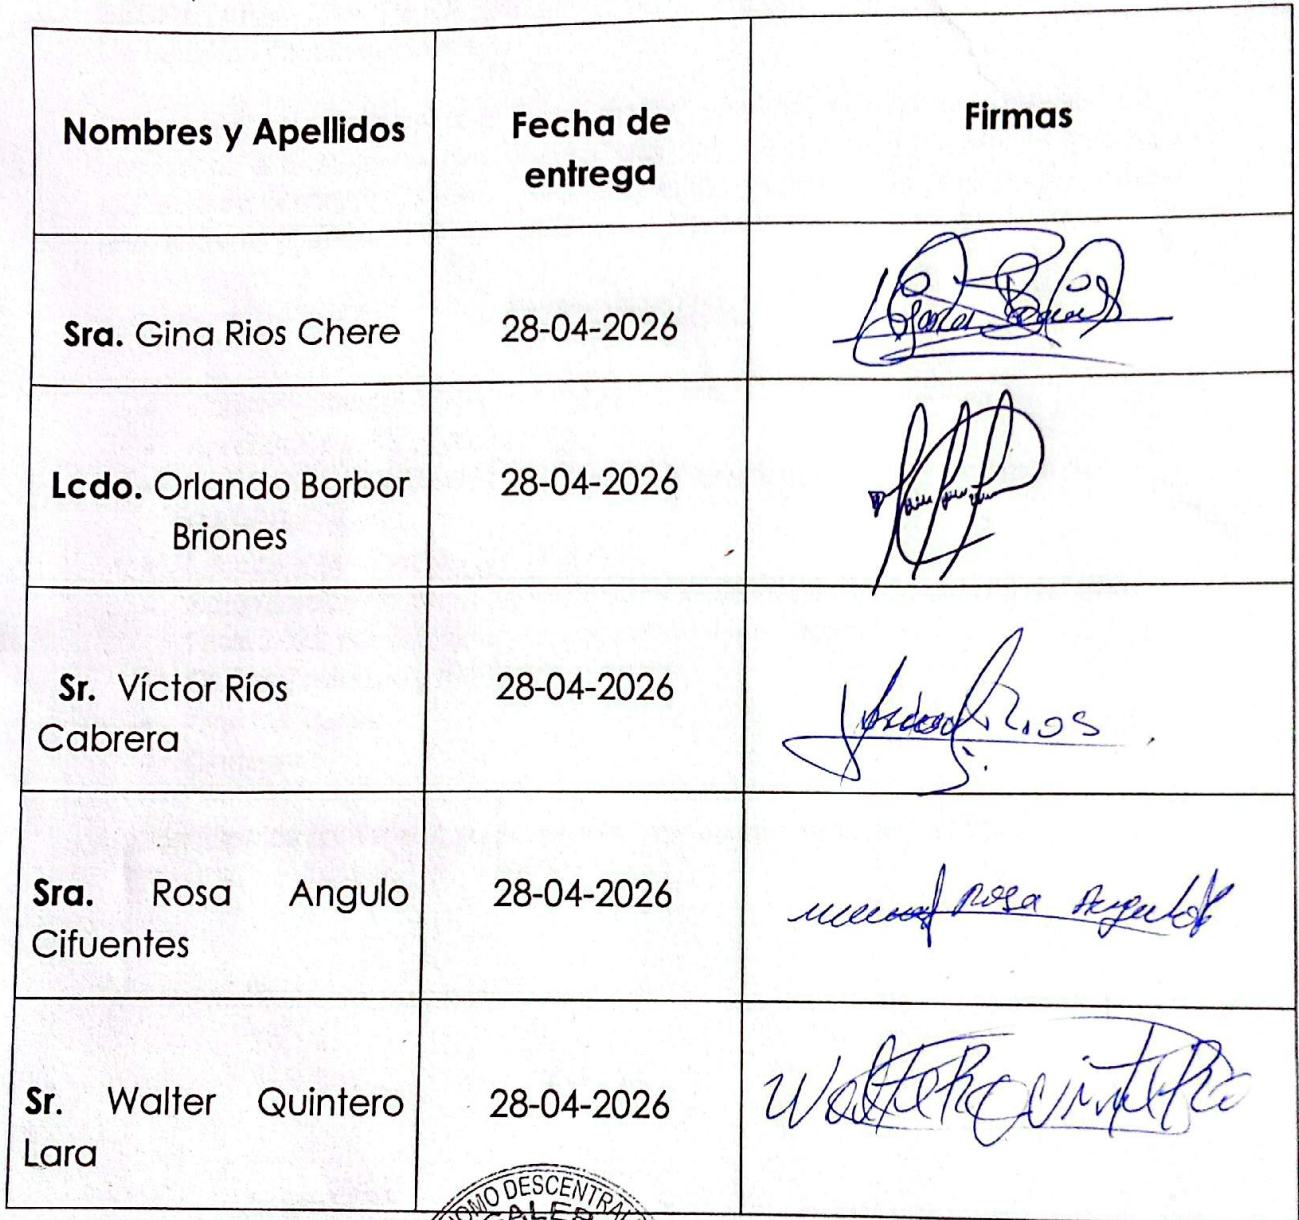 Nombres y Apellidos
Fecha de
entrega
Firmas
Sra. Gina Rios Chere
28-04-2026
Lcdo. Orlando Borbor
Briones
28-04-2026
Sr. Víctor Ríos
Cabrera
28-04-2026
Rios
Sra. Rosa Angulo
Cifuentes
28-04-2026
Rosa Angulo
Sr. Walter Quintero
Lara
28-04-2026
Walter Quintero
DESCENTRAL